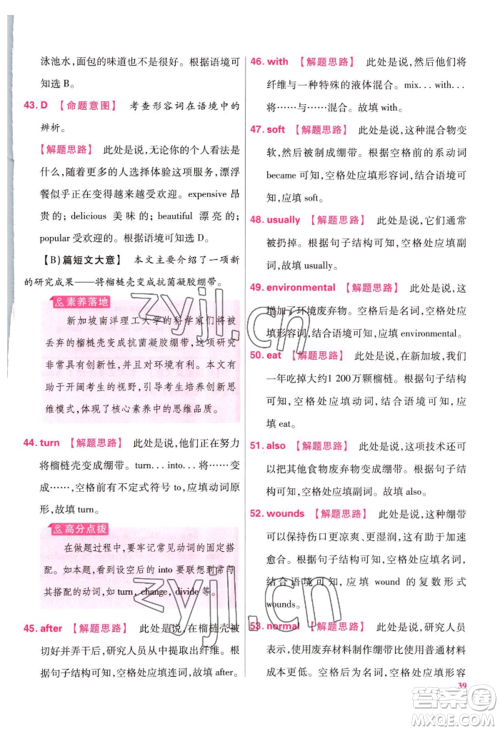 泳池水，面包的味道也不同。根据语境可
知选 B。
43. D 【命题意图】 考查形容词在语境中的
辨析。
【解题思路】 此处是说，无论你的个人看法是
什么，随着更多的人选择这项服务，漂浮
餐似乎正在越来越受欢迎。expensive 昂
贵的；delicious 美味的；beautiful 漂亮的；
popular 受欢迎的。根据语境可知选 D。
(B)篇短文大意】 本文主要介绍了一项新
的研究成果——将榴梿壳变成抗菌凝胶绷带。
素养落地
新加坡南洋理工大学的科学家们将被
丢弃的榴梿壳变成抗菌凝胶绷带。本文有
助于开阔考生的视野，引导考生培养创新思
维模式，体现了核心素养中的创新思维。
44. turn 【解题思路】 此处是说，他们正在努力
将榴梿壳变成绷带。turn…into…将……变
成……，空格前有不定式符号 to，应填动词原
形，故填 turn。
高分点拨
在做题过程中，要牢记常见动词的固定搭
配。如本题，看到设空后的 into 要联想到有此搭
配的动词，如 turn，change，divide 等。
45. after 【解题思路】 此处是说，在榴梿壳被
切碎并冷冻干燥后，人们去除了其中不
好的部分，并将剩下的部分做成粉末。根
据句子结构可知，空格处应填连词，故填
46. with 【解题思路】 此处是说，他们将这些
纤维与一种特殊的液体混合。mix… with…
将……与……混合。故填 with。
47. soft 【解题思路】 此处是说，这种混合物变
软，然后被制成绷带。根据空格前的系动词
became 可知，空格处应填形容词，结合语境
可知，应填 soft。
48. usually 【解题思路】 此处是说，它们通常
被扔掉。根据句子结构可知，空格处应填副
词，结合语境可知，应填 usually。
49. environmental 【解题思路】 此处是说，这
增加了环境废弃物。根据句子结构可知，空
格处应填形容词，故填 environmental。
50. eat 【解题思路】 此处是说，在新加坡，我们
一年吃掉大约 1 200 万颗榴梿。根据句子结构
可知，空格处应填动词，结合语境可知，
应填 eat。
51. also 【解题思路】 此处是说，这项技术还可
以把其他食物废弃物变成绷带。根据句子
结构可知，空格处应填副词，故填 also。
52. wounds 【解题思路】 此处是说，这种绷带
比其他绷带让伤口更凉爽，从而有助于加速
愈合。根据句子结构可知，空格处应填名词，
结合语境可知，应填 wound 的复数形式
wounds。
53. normal 【解题思路】 此处是说，研究人员
表示，使用废弃材料制作绷带比使用普通材料
成本更低。空格后为名词，空格处应填形容
39
zyjl.cn
zyjl.cn
答案圈